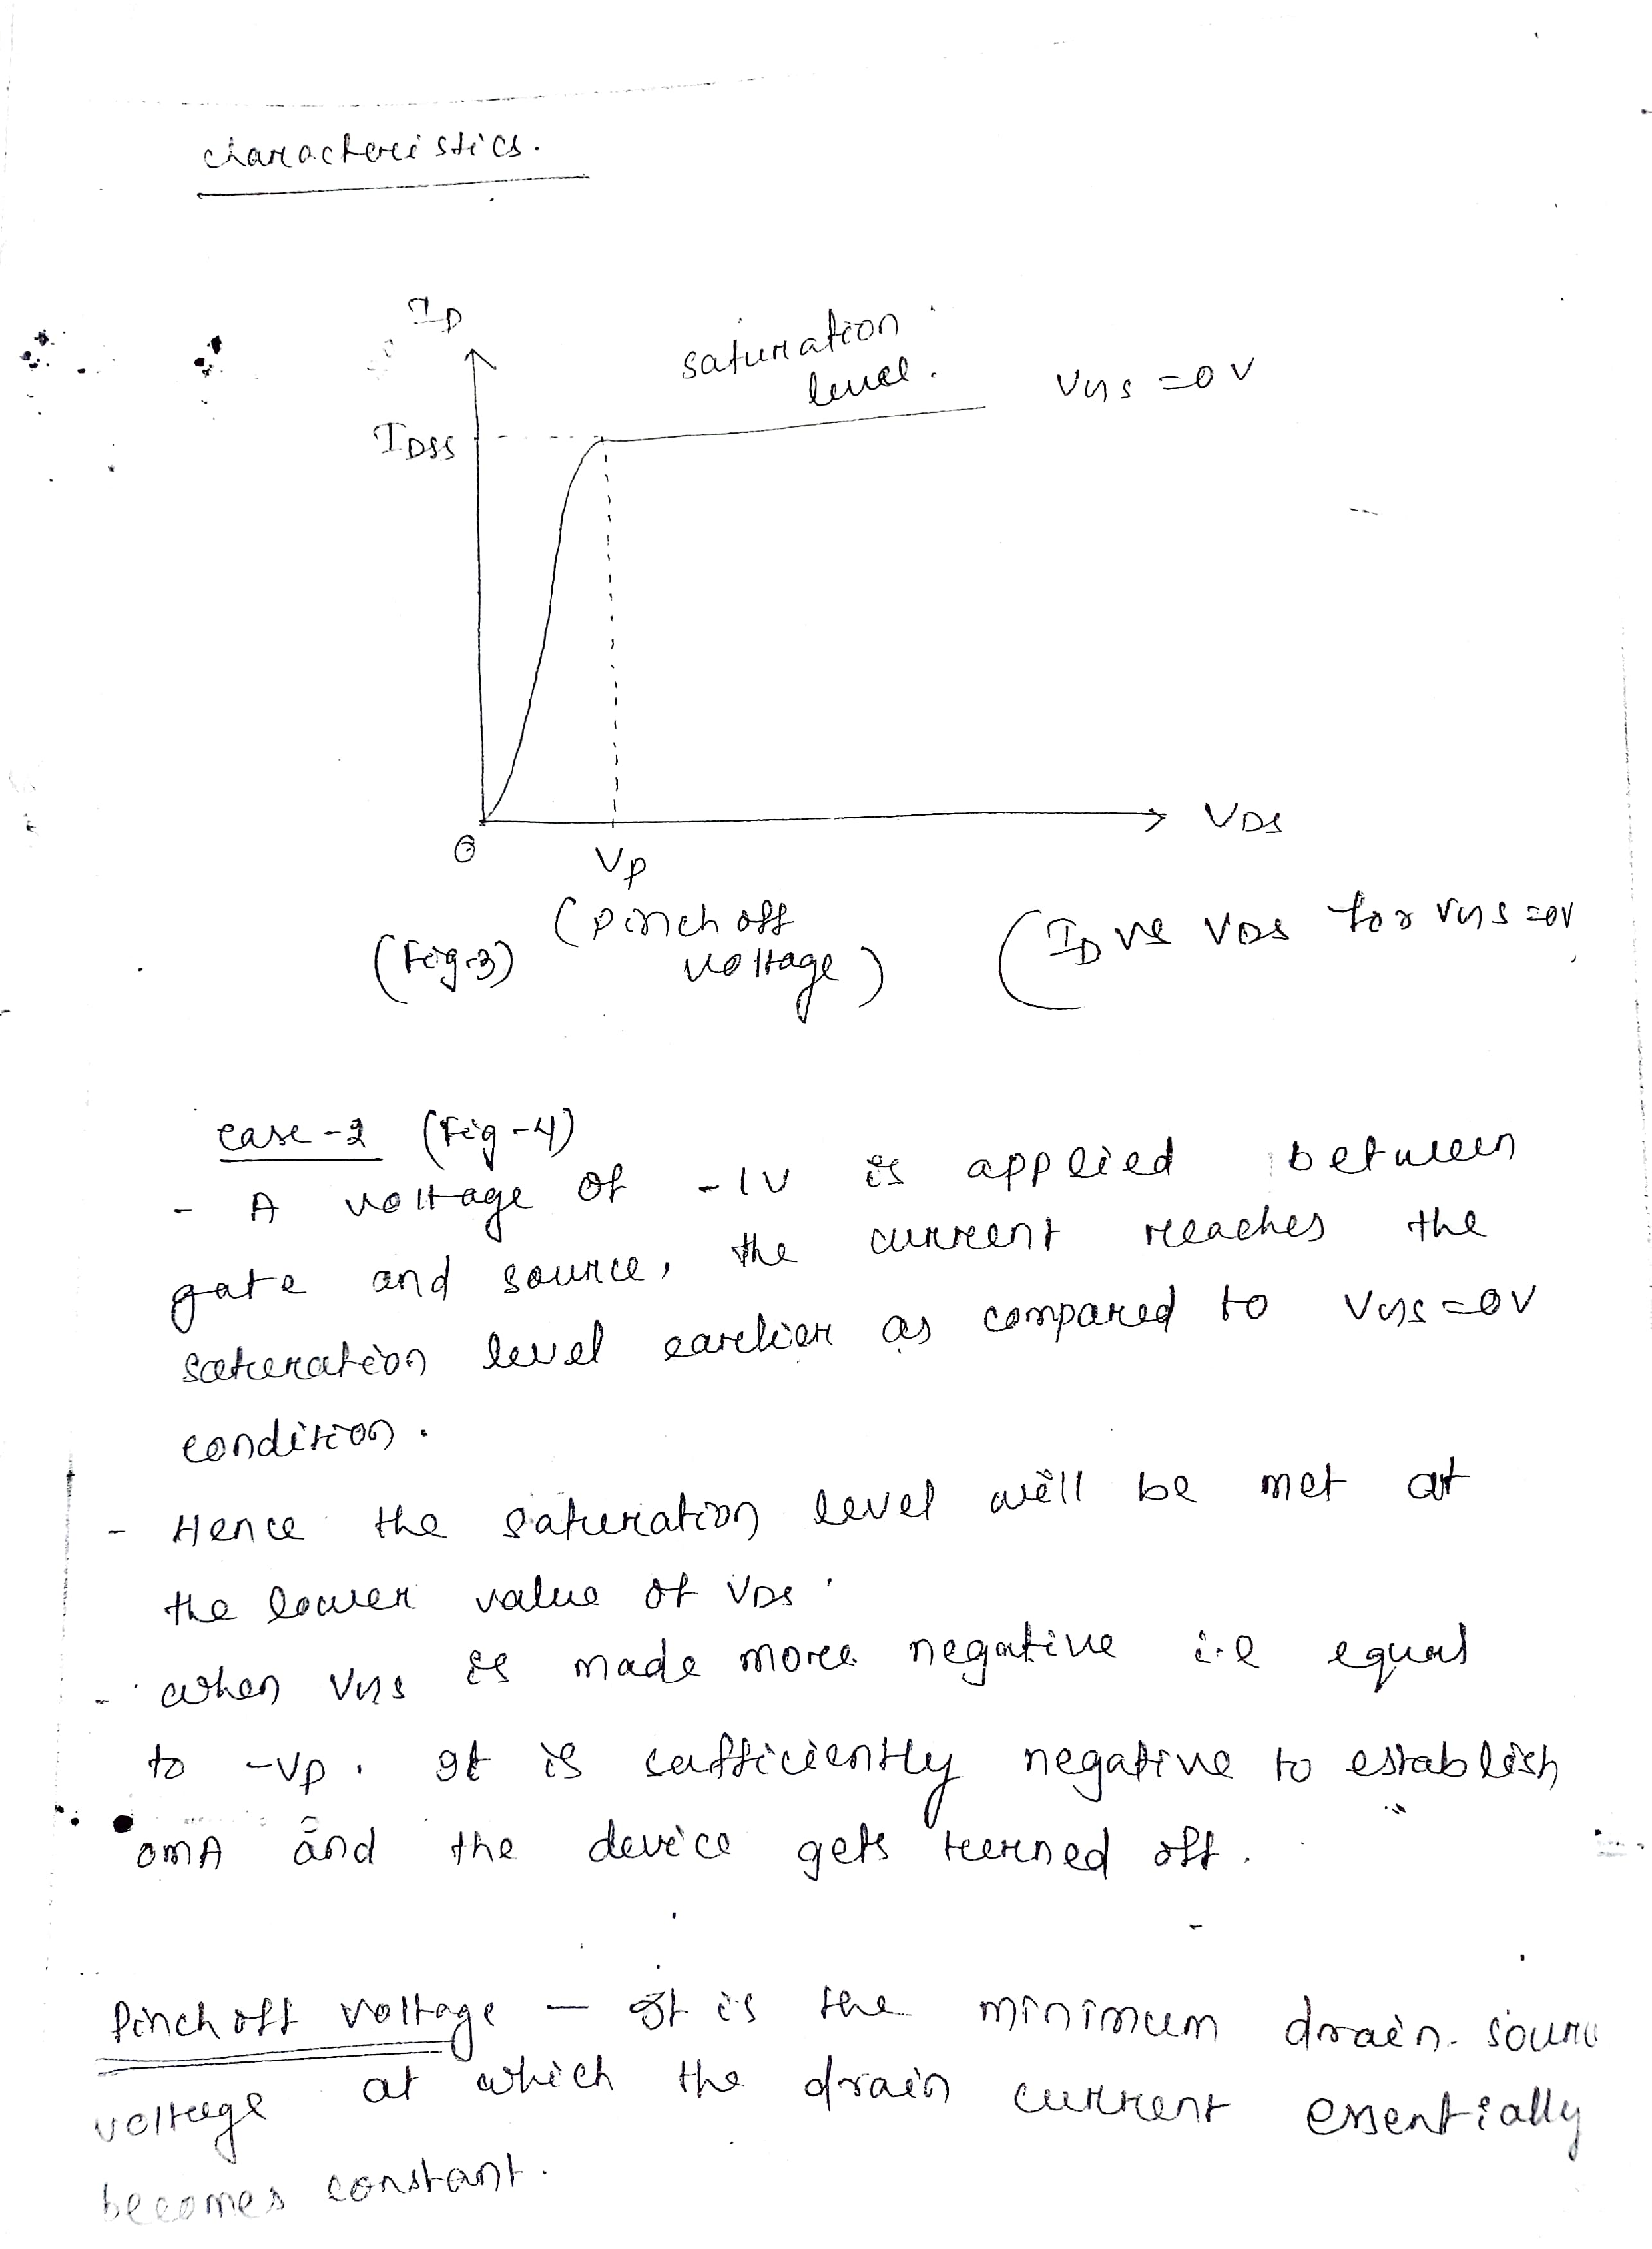 characteristics.
ID
saturation
level.
VGS = 0V
IDSS
VDS
0
VP
(Fig-3)
(Pinch off
voltage)
(ID vs VDS for VGS = 0V
case-2 (Fig-4)
- A voltage of -1V is applied between
gate and source, the current reaches the
saturation level earlier as compared to VGS = 0V
condition.
- Hence the saturation level will be met at
the lower value of VDS.
- when VGS is made more negative i.e equal
to -VP. It is sufficiently negative to establish
0mA and the device gets turned off.
Pinch off voltage - It is the minimum drain-source
voltage at which the drain current essentially
becomes constant.